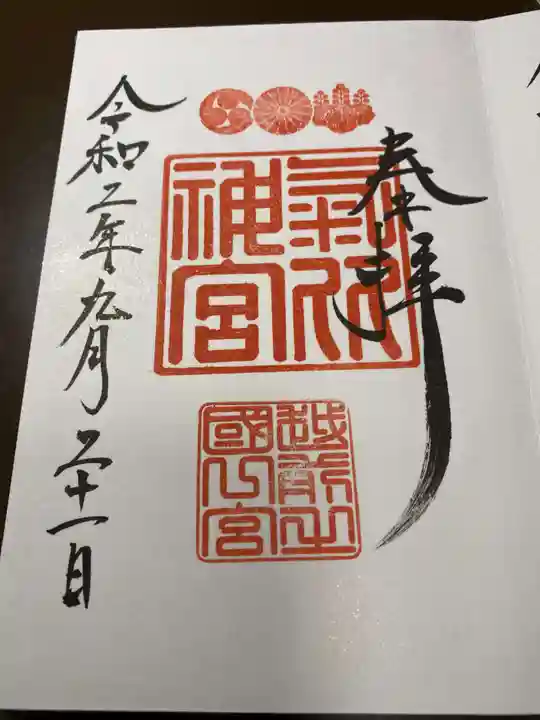 奉拝
氣比
神宮
越前之
國一宮
令和二年九月二十一日